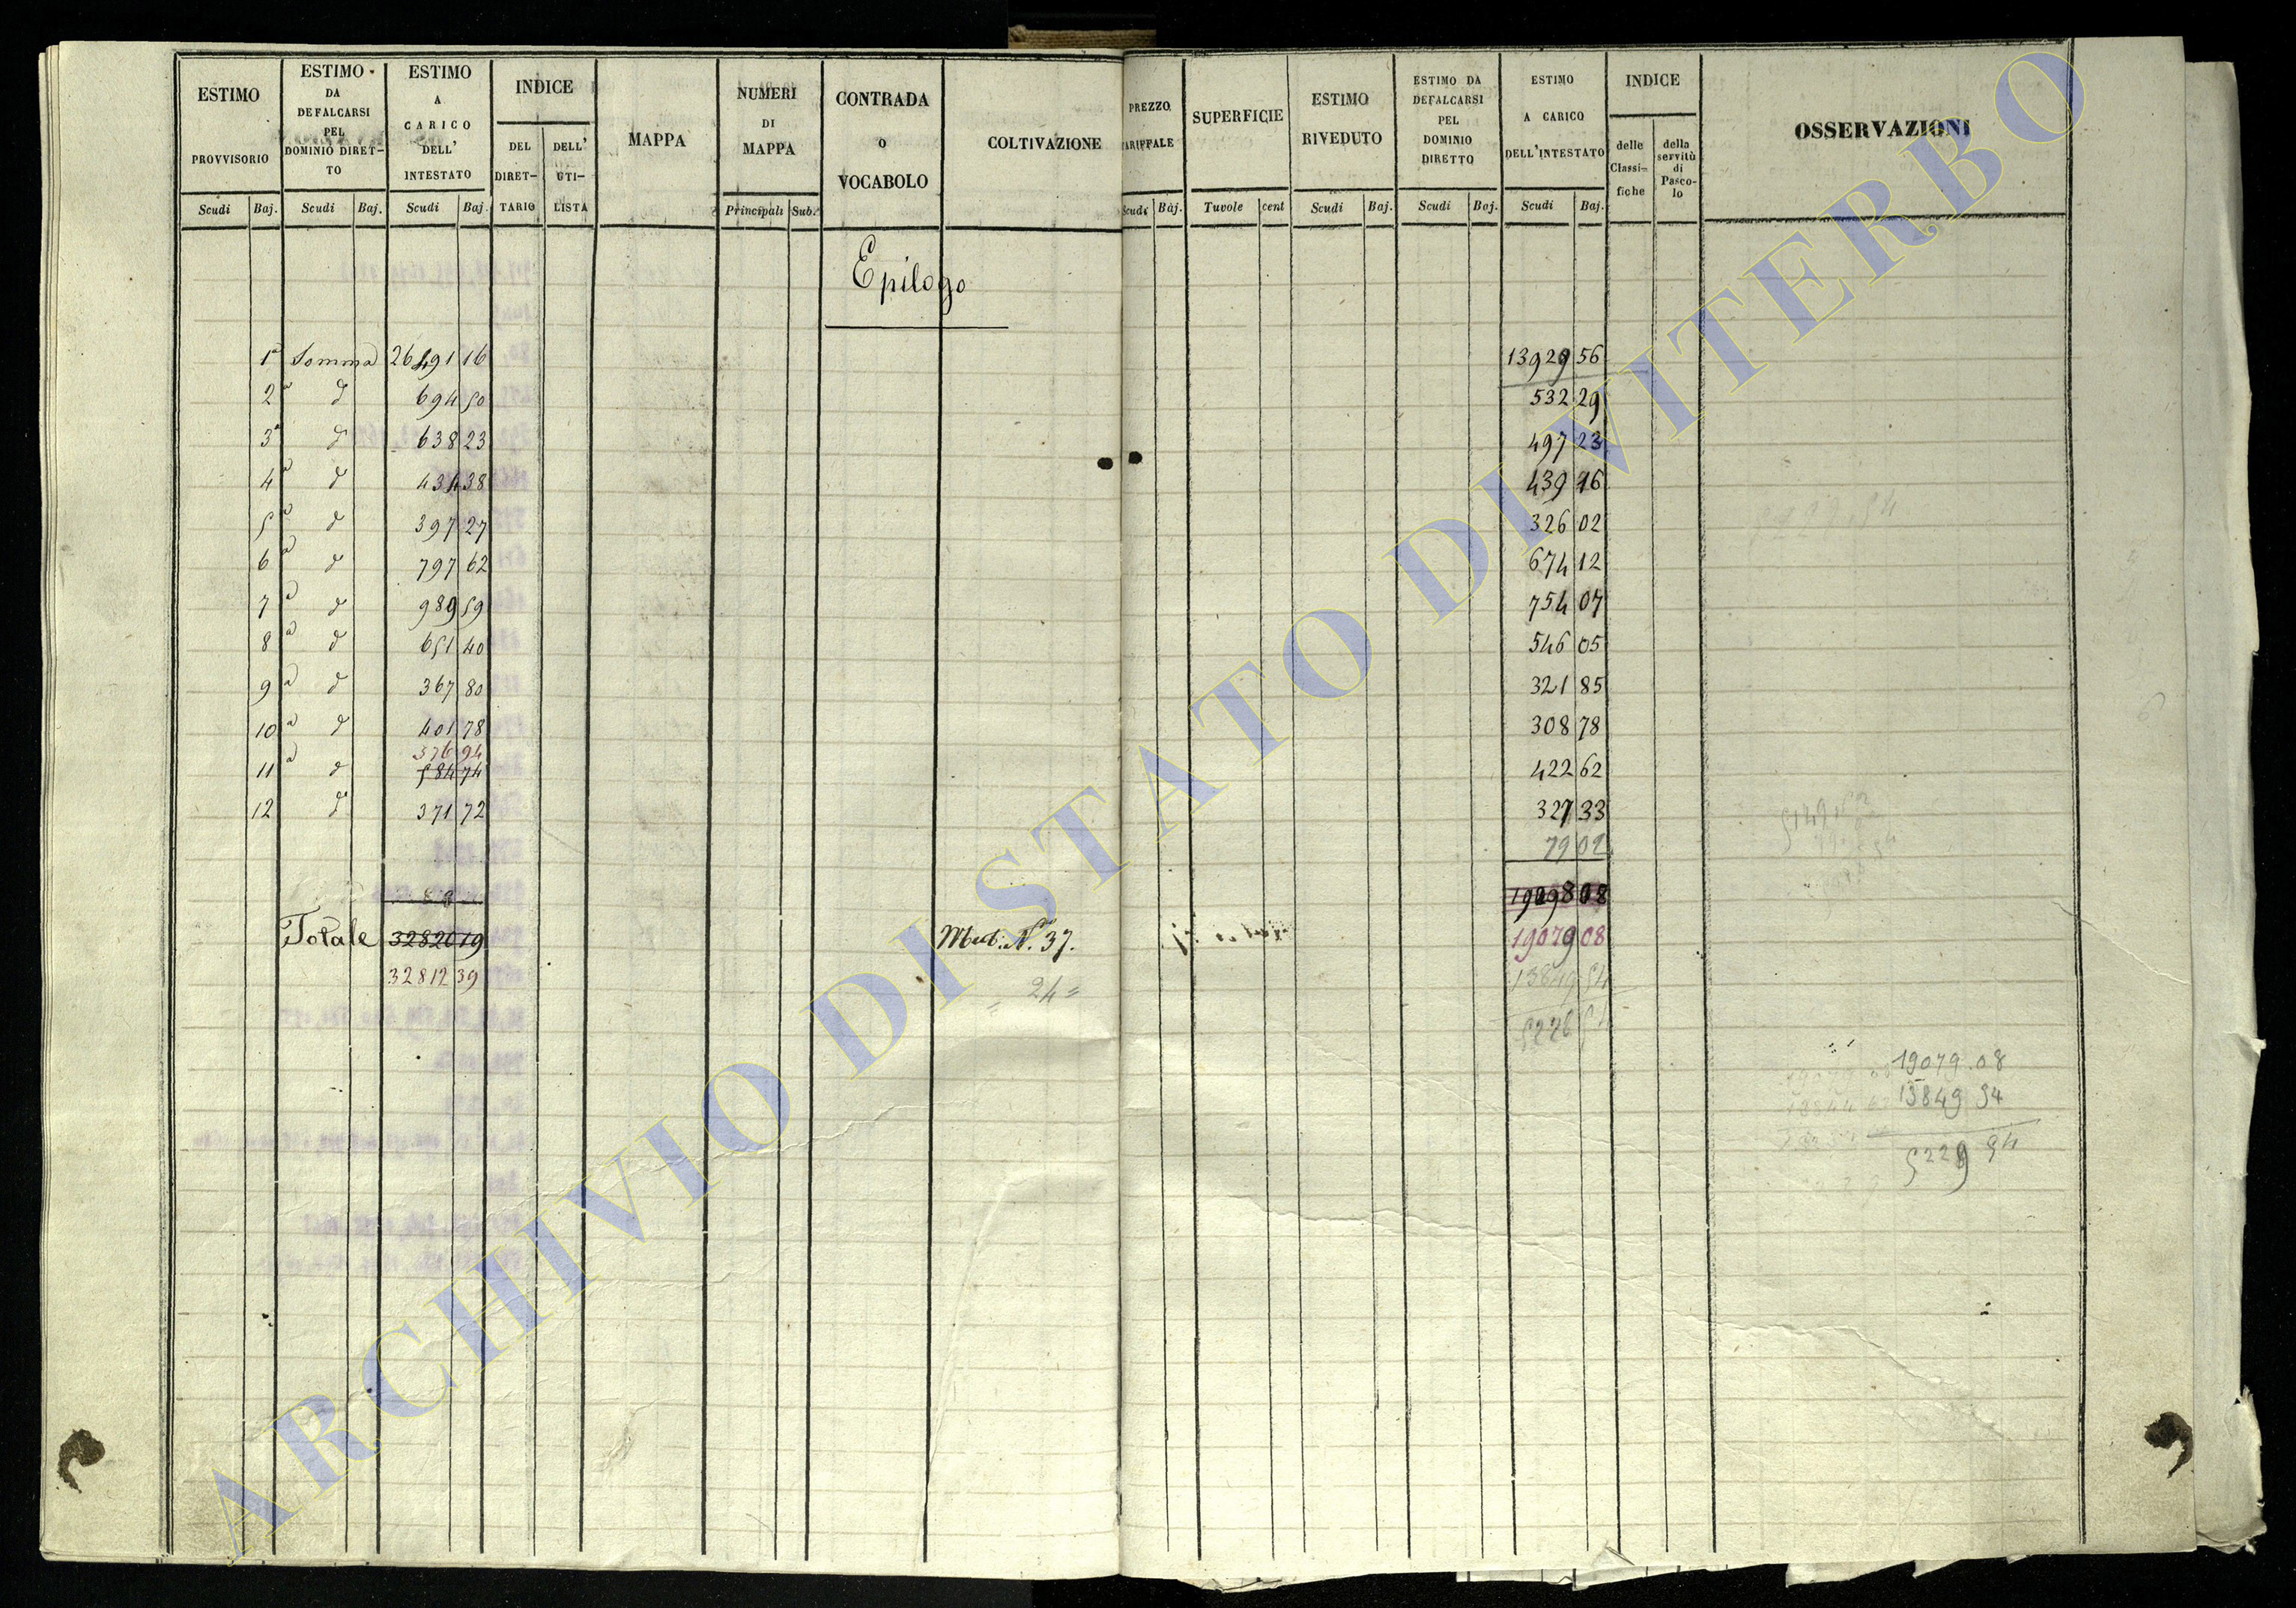 ESTIMO PROVVISORIO
Scudi Baj.
ESTIMO DA DEFALCARSI PEL DOMINIO DIRET-TO
Scudi Baj.
ESTIMO A CARICO DELL' INTESTATO
Scudi Baj.
INDICE
DEL DIRET-TARIO
DELL' UTI-LISTA
MAPPA
NUMERI DI MAPPA
Principali Sub.
CONTRADA o VOCABOLO
COLTIVAZIONE
PREZZO TARIFFALE
Scudi Baj.
SUPERFICIE
Tavole cent
ESTIMO RIVEDUTO
Scudi Baj.
ESTIMO DA DEFALCARSI PEL DOMINIO DIRETTO
Scudi Baj.
ESTIMO A CARICO DELL'INTESTATO
Scudi Baj.
INDICE
delle Classi-fiche
della servitù di Pasco-lo
OSSERVAZIONI
Epilogo
1ª Somma 26491 16 13929 56
2ª d 694 50 532 29
3ª d 638 23 497 23
4ª d 434 38 439 16
5ª d 397 27 326 02
6ª d 797 62 674 12
7ª d 989 59 754 07
8ª d 651 40 546 05
9ª d 367 80 321 85
10ª d 401 78 308 78
376 94
11ª d 584 74 422 62
12 d 371 72 327 33
79 02
Totale 32820 19 N. 37. 19079 08
32812 39 13849 54
24 =
19079.08
13849 54
5229 54
ARCHIVIO DI STATO DI VITERBO